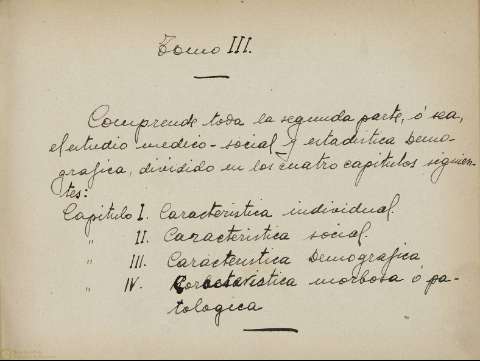 Tomo III.
Comprende toda la segunda parte, ó sea,
el estudio medico-social y estadistica Demo-
grafica, dividido en los cuatro capitulos siguien-
tes:
Capitulo I. Caracteristica individual.
" II. Caracteristica social.
" III. Caracteristica Demografica
" IV. Caracteristica morbosa ó pa-
tologica